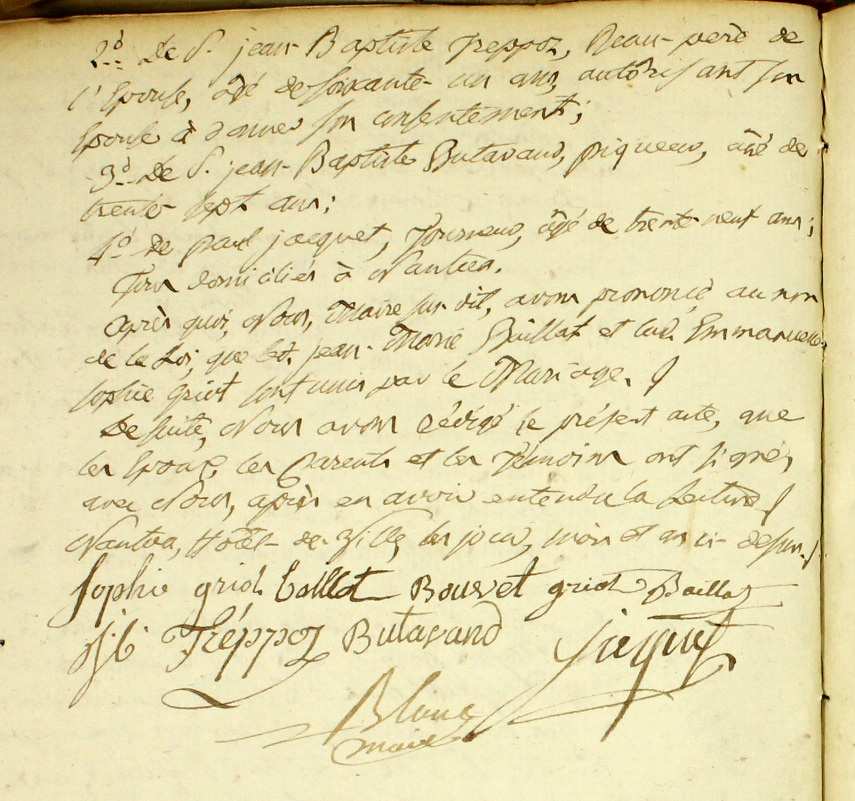 2.d De S. jean-Baptiste Treppoz, Beau-père de
l'Epouse, âgé de soixante-un ans, autorisant son
Epouse à donner son consentement;
3.d De S. jean-Baptiste Butavand, piqueur, âgé de
trente-sept ans;
4.d De paul jacquet, Tourneur, âgé de trente-neuf ans;
Tous domiciliés à Nantua.
Après quoi, Nous, Maire sus-dit, avons prononcé au nom
de la Loi, que led. jean-Marie Baillat et lad. Emmanuelle
sophie Griot sont unis par le Mariage.
De suite, Nous avons rédigé le présent acte, que
les Epoux, les Parents et les Témoins ont signé,
avec Nous, après en avoir entendu la Lecture
Nantua, Hôtel-de-Ville, les jour, mois et an ci-dessus.
Sophie griot Bouvet griot Baillat
J.B. Tréppoz Butavand Jacquet
Blanc
maire